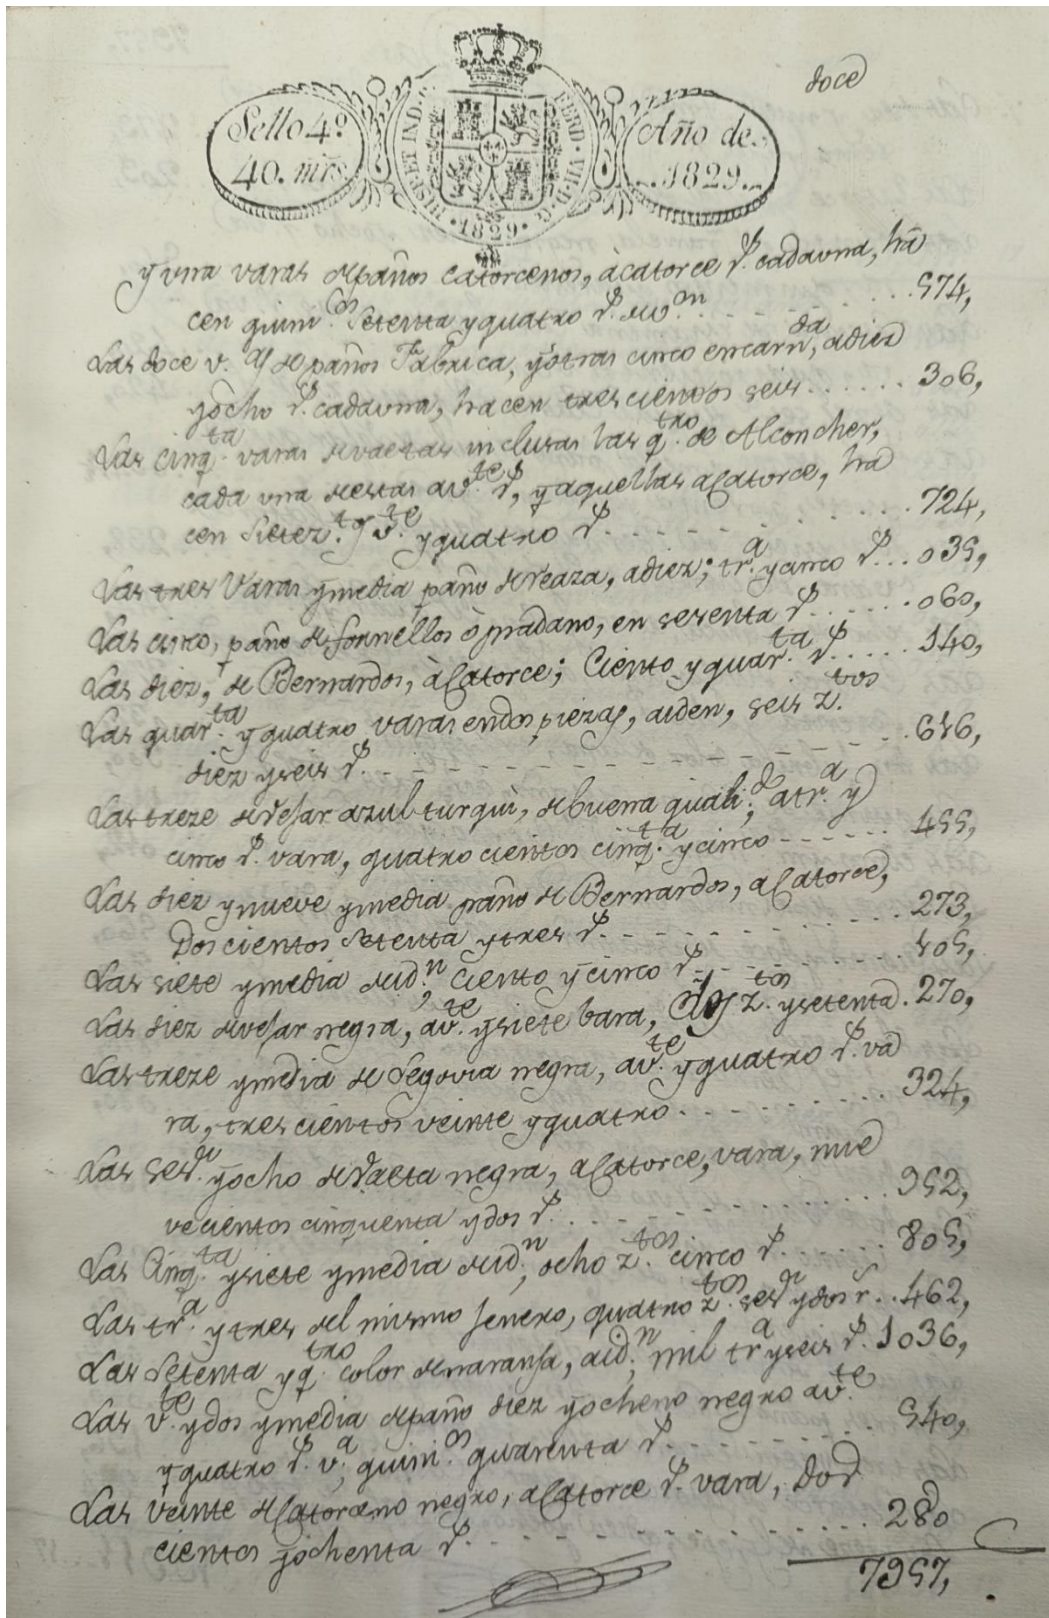 doce
Sello 4º
40. mrs
HISP. ET IND. R. FERD. VII. D. G.
1829
Año de
1829
y una varas de paños catorcenos, à catorce rs. cada una, ha
cen quinos. Setenta y quatro rs. de von. 574,
Las doce v. as de paños Fabrica, y otras cinco encarnda, a diez
y ocho rs. cada una, hacen tres cientos seis 306,
Las cinqta. varas de vaetas inclusas las qtro. de Alconcher,
cada una de estas a vte. rs, y aquellas a Catorce, ha
cen Seteztos vte. y quatro rs. 724,
Las tres Varas y media paño de reaza, a diez; tra. y cinco rs. 035,
Las cinco, paño de fonnellos ò pradano, en sesenta rs. 060,
Las diez, de Bernardos, à Catorce; Ciento y quarta. rs. 140,
Las quarta. y quatro varas en dos piezas, a iden, seis ztos.
diez y seis rs. 616,
Las treze de vejar azul turqui, de buena qualid., a tra. y
cinco rs. vara, quatro cientos cinqta. y cinco 455,
Las diez y nueve y media paño de Bernardos, a Catorce,
Dos cientos Setenta y tres rs. 273,
Las siete y media de idn., Ciento y cinco rs. 105,
Las diez de vejar negra, a vte. y siete bara, Dos ztos. y setenta 270,
Las treze y media de Segovia negra, a vte. y quatro rs. va
ra, tres cientos veinte y quatro 324,
Las Sesta. y ocho de Vaeta negra, a Catorce, vara, nue
ve cientos cinquenta y dos rs. 952,
Las Cinqta. y siete y media de idn., ocho ztos. cinco rs. 805,
Las tra. y tres del mismo Jenero, quatro ztos. sesta. y dos r. 462,
Las Setenta y qtro. color de naranja, a idn., mil tra y seis rs. 1036,
Las vte. y dos y media de paño diez y ocheno negro a vte.
y quatro rs. va., quinos. quarenta rs. 540,
Las veinte de Catorceno negro, a Catorce rs. vara, Dos
cientos y ochenta rs. 280
7957,